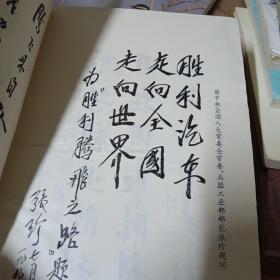 原中央全国人大常委会常委、兵器工业部部长张珍题词
胜利汽车
走向全国
走向世界
为“胜利腾飞之路”题
张珍 七月